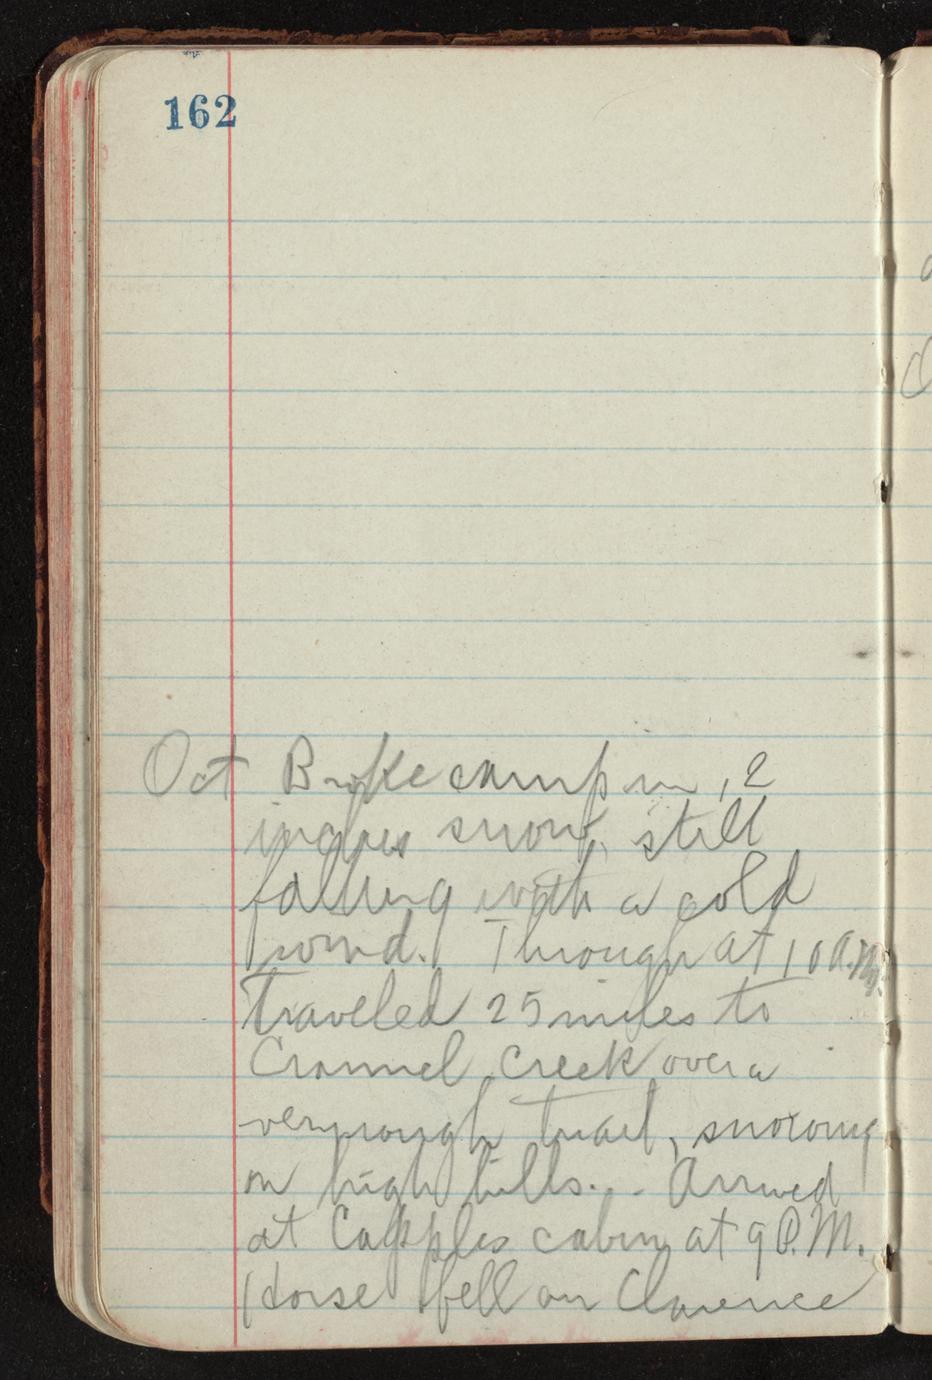 162
Oct Broke camp in 12
inches snow, still
falling with a cold
wind. Through at 10 A.M.
Traveled 25 miles to
Creek over a
very rough trail, snowing
on high hills. Arrived
at Capples cabin at 9 P.M.
Horse fell on Clarence